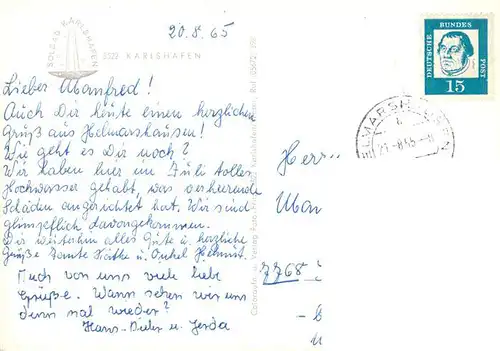 20.8.65
SOLBAD KARLSHAFEN
3522 KARLSHAFEN
Lieber Manfred!
Auch Dir heute einen herzlichen
Gruß aus Helmarshausen!
Wie geht es Dir noch?
Wir haben hier im Juli tolles
Hochwasser gehabt, was verheerende
Schäden angerichtet hat. Wir sind
glimpflich davongekommen.
Dir weiterhin alles Gute u. herzliche
Grüße Tante Käthe u. Onkel Helmut.
Auch von uns viele liebe
Grüße. Wann sehen wir uns
denn mal wieder?
Hans-Dieter u. Gerda
DEUTSCHE BUNDESPOST
15
Herrn
Man
7768